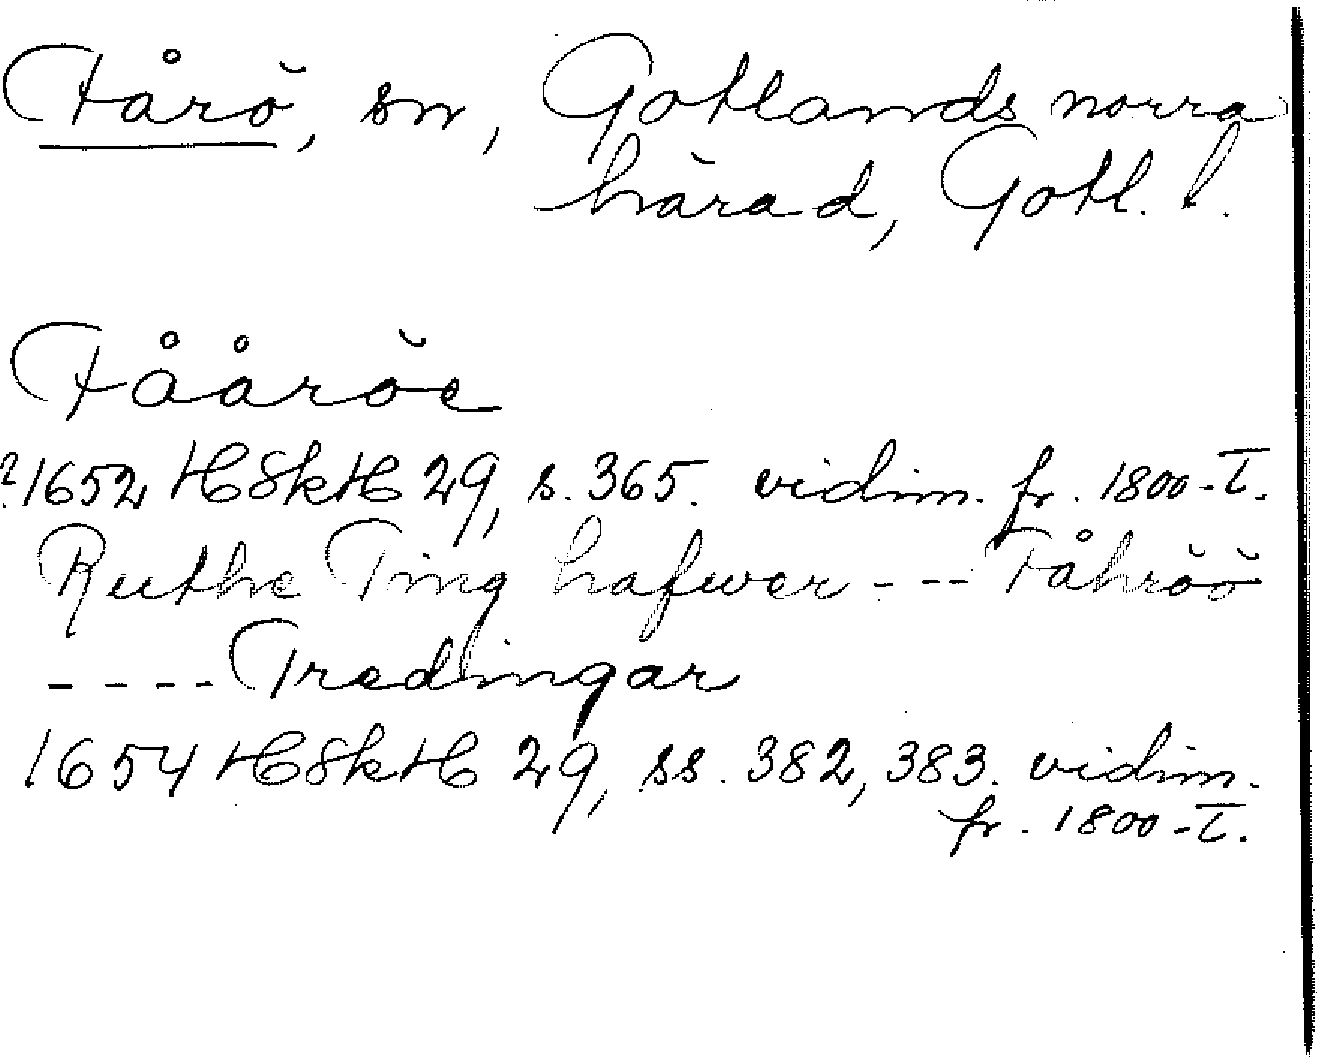 Fårö, sn, Gotlands norra
härad, Gotl. l.
Fååröe
?1652 HSkH 29, s. 365. vidim. fr. 1800-t.
Ruthe Ting hafwer --- Fåhröö
---- Tredingar
1654 HSkH 29, ss. 382, 383. vidim.
fr. 1800-t.